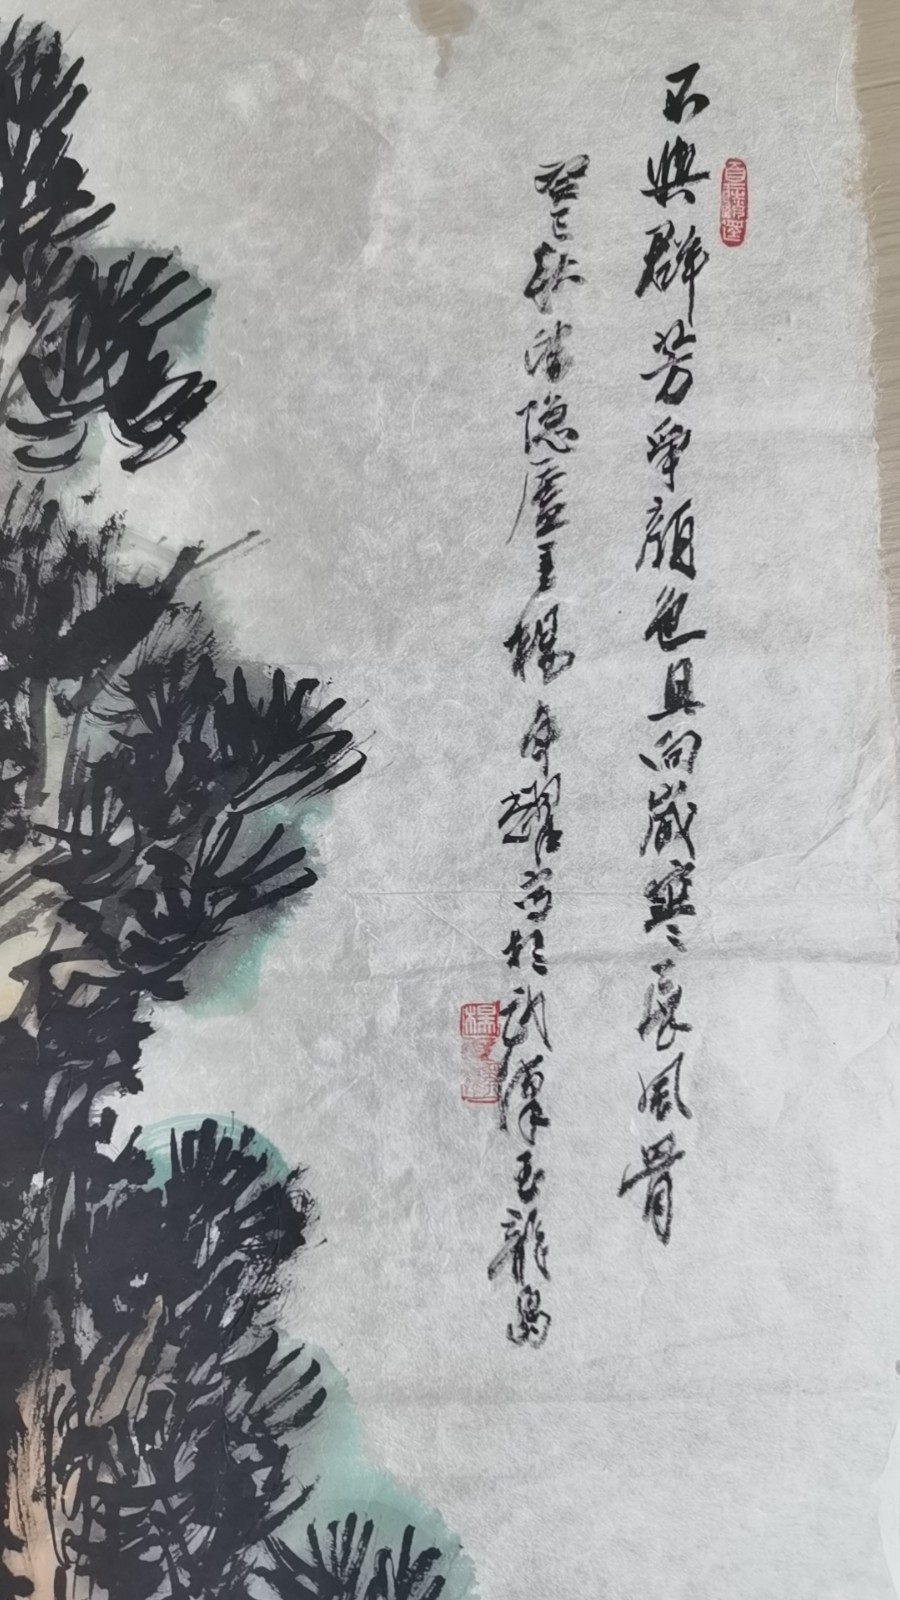 不與群芳爭顏色且向歲寒展風骨
癸巳秋 隱廬主楊 耀寫於武漢玉龍島
楊